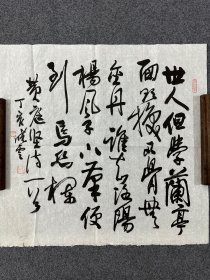 世人但學蘭亭
面欲換凡骨無
金丹誰知洛陽
楊風子下筆便
到烏絲欄
黄庭堅詩一首
丁亥